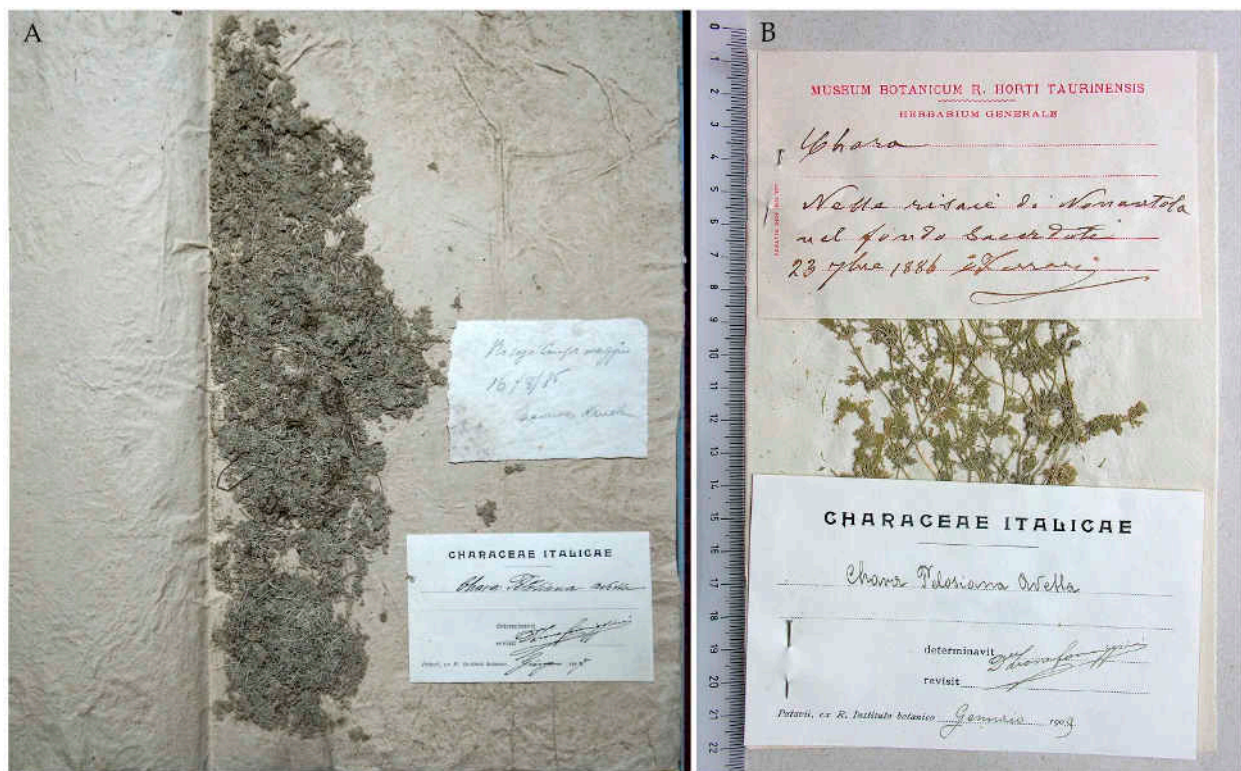 A
16/8/85
CHARACEAE ITALICAE
Chara Pelosiana Avetta
determinavit
revisit
Patavii, ex R. Instituto botanico
B
0
1
2
3
4
5
6
7
8
9
10
11
12
13
14
15
16
17
18
19
20
21
22
MUSEUM BOTANICUM R. HORTI TAURINENSIS
HERBARIUM GENERALE
Chara
Nelle risaie di Nonantola
nel fondo Sacerdoti
23 7bre 1886 Ferrari
CHARACEAE ITALICAE
Chara Pelosiana Avetta
determinavit
revisit
Patavii, ex R. Instituto botanico Gennaio 1909